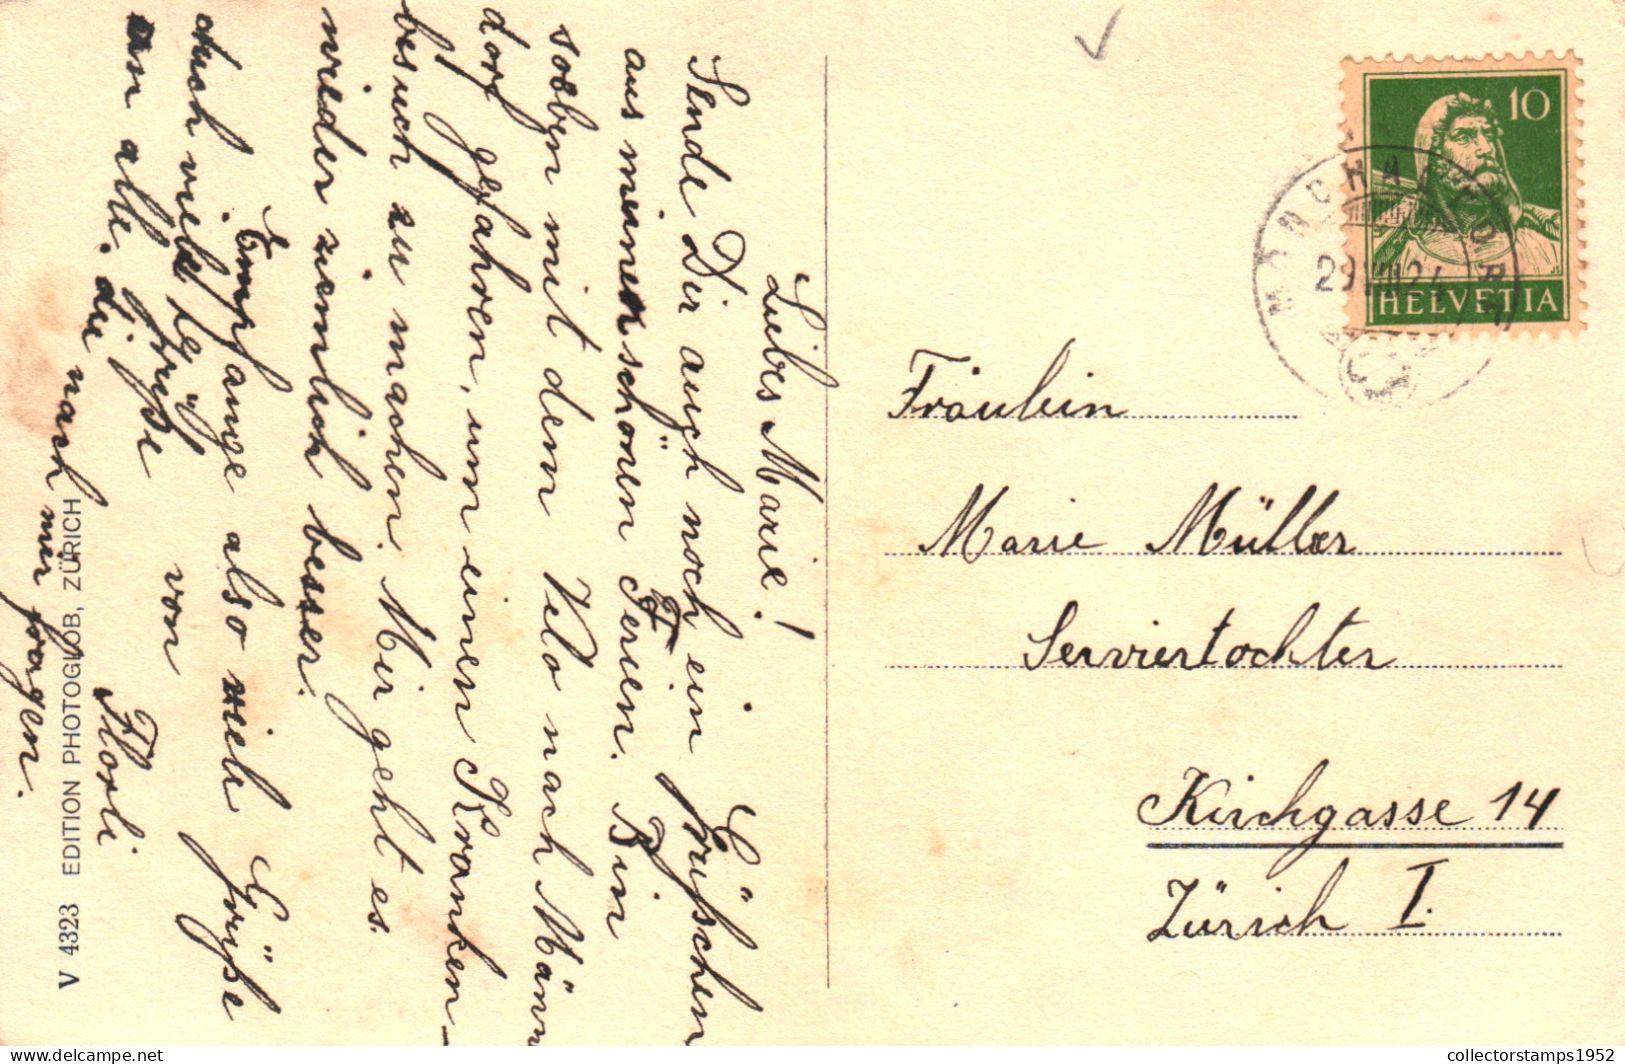 Liebes Marie!
Sende Dir auch noch ein Grüßchen
aus meinen schönen Ferien. Bin
soeben mit dem Velo nach Männ
dorf gefahren, um einen Kranken-
besuch zu machen. Mir geht es
wieder ziemlich besser.
Empfange also viele Grüße
auch viele
an alle, die nach mir fragen.
Grüße von
Florli
V 4323 EDITION PHOTOGLOB, ZÜRICH
10
HELVETIA
Fräulein
Marie Müller
Serviertochter
Kirchgasse 14
Zürich I.
collectorstamps1952